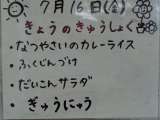 7月16日(金)
きょうのきゅうしょく
・なつやさいのカレーライス
・ふくじんづけ
・だいこんサラダ
・ぎゅうにゅう